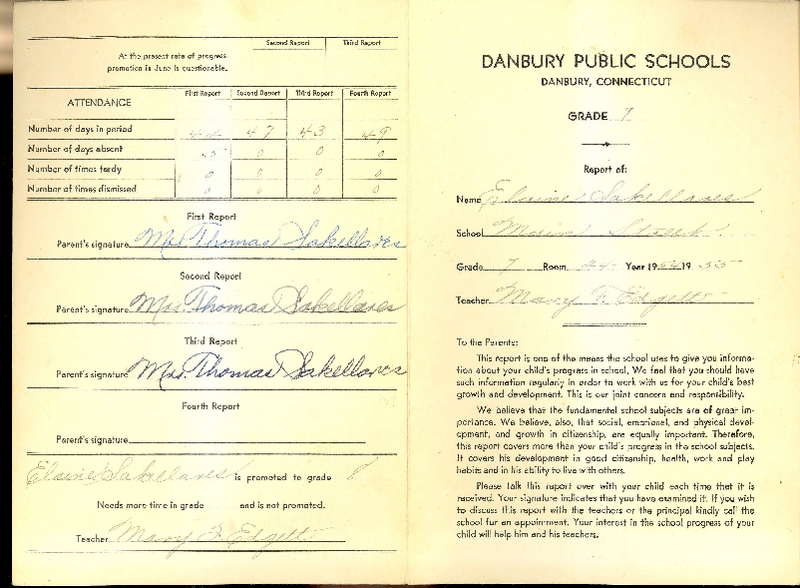 Second Report Third Report
At the present rate of progress
promotion in June is questionable.
ATTENDANCE First Report Second Report Third Report Fourth Report
Number of days in period 44 47 43 49
Number of days absent .5 0 0 0
Number of times tardy 0 0 0 0
Number of times dismissed 0 0 0 0
First Report
Parent's signature Mrs. Thomas Sakellares
Second Report
Parent's signature Mrs. Thomas Sakellares
Third Report
Parent's signature Mrs. Thomas Sakellares
Fourth Report
Parent's signature
Elaine Sakellares is promoted to grade 8
Needs more time in grade and is not promoted.
Teacher Mary F. Edgett
DANBURY PUBLIC SCHOOLS
DANBURY, CONNECTICUT
GRADE 7
Report of:
Name Elaine Sakellares
School Main Street
Grade 7 Room 24 Year 1954 19 55
Teacher Mary F. Edgett
To the Parents:
This report is one of the means the school uses to give you informa-
tion about your child's progress in school. We feel that you should have
such information regularly in order to work with us for your child's best
growth and development. This is our joint concern and responsibility.
We believe that the fundamental school subjects are of great im-
portance. We believe, also, that social, emotional, and physical devel-
opment, and growth in citizenship, are equally important. Therefore,
this report covers more than your child's progress in the school subjects.
It covers his development in good citizenship, health, work and play
habits and in his ability to live with others.
Please talk this report over with your child each time that it is
received. Your signature indicates that you have examined it. If you wish
to discuss this report with the teachers or the principal kindly call the
school for an appointment. Your interest in the school progress of your
child will help him and his teachers.